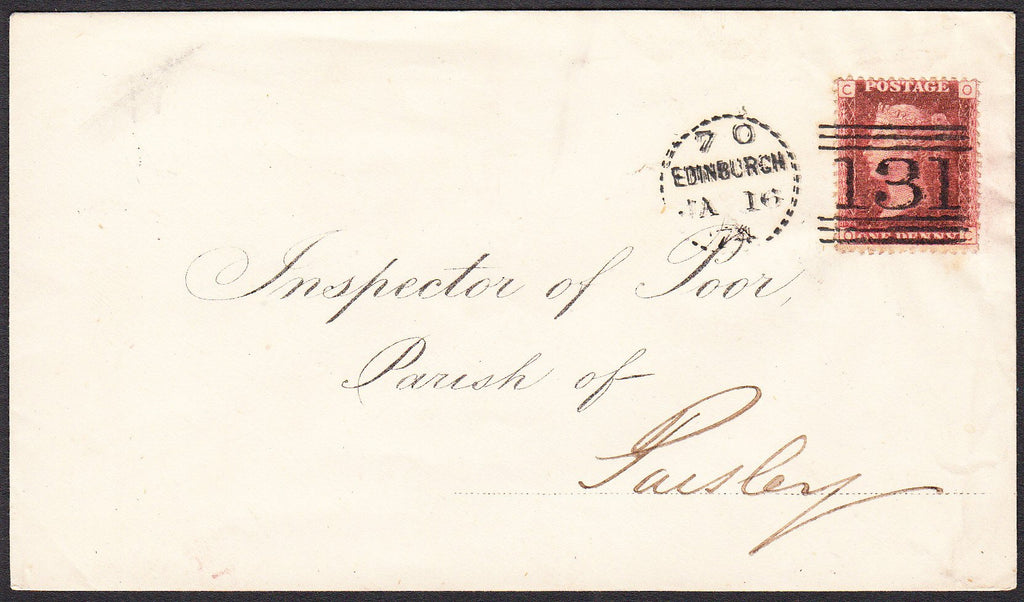 C POSTAGE O
70
EDINBURGH
JA 16
74
131
O ONE PENNY C
Inspector of Poor,
Parish of
Paisley